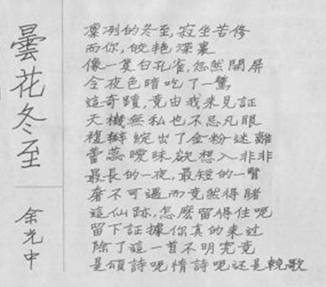 曇花冬至
余光中
凜冽的冬至，寂坐苦修
而你，皎艷深裹
像一隻白孔雀，忽然開屏
令夜色暗吃了一驚
這奇蹟，竟由我來見証
天機無私也不忌凡眼
複瓣綻出了金粉迷離
蕾蕊曖昧欲想入非非
最長的一夜，最短的一瞥
奢不可遇而竟然得睹
這仙跡，怎麼留得住呢
留下証據你真的來過
除了這一首不明究竟
是頌詩呢情詩呢還是輓歌